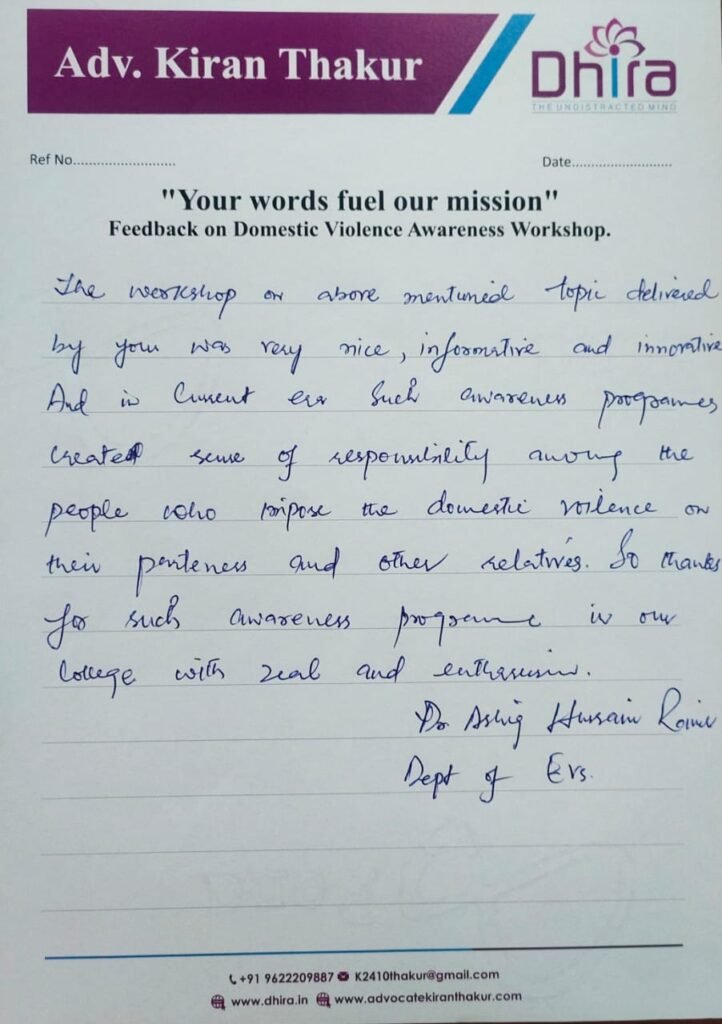 Adv. Kiran Thakur
Dhira
THE UNDISTRACTED MIND
Ref No..........................
Date.........................
"Your words fuel our mission"
Feedback on Domestic Violence Awareness Workshop.
The workshop on above mentioned topic delivered
by your was very nice, informative and innovative
And in Current era Such awareness programmes
created sense of responsibility among the
people who impose the domestic voilence on
their penteness and other relatives. So thanks
for such awareness programme in our
College with zeal and
Dr Ashiq Hussain
Dept of Evs.
+91 9622209887 K2410thakur@gmail.com
www.dhira.in www.advocatekiranthakur.com